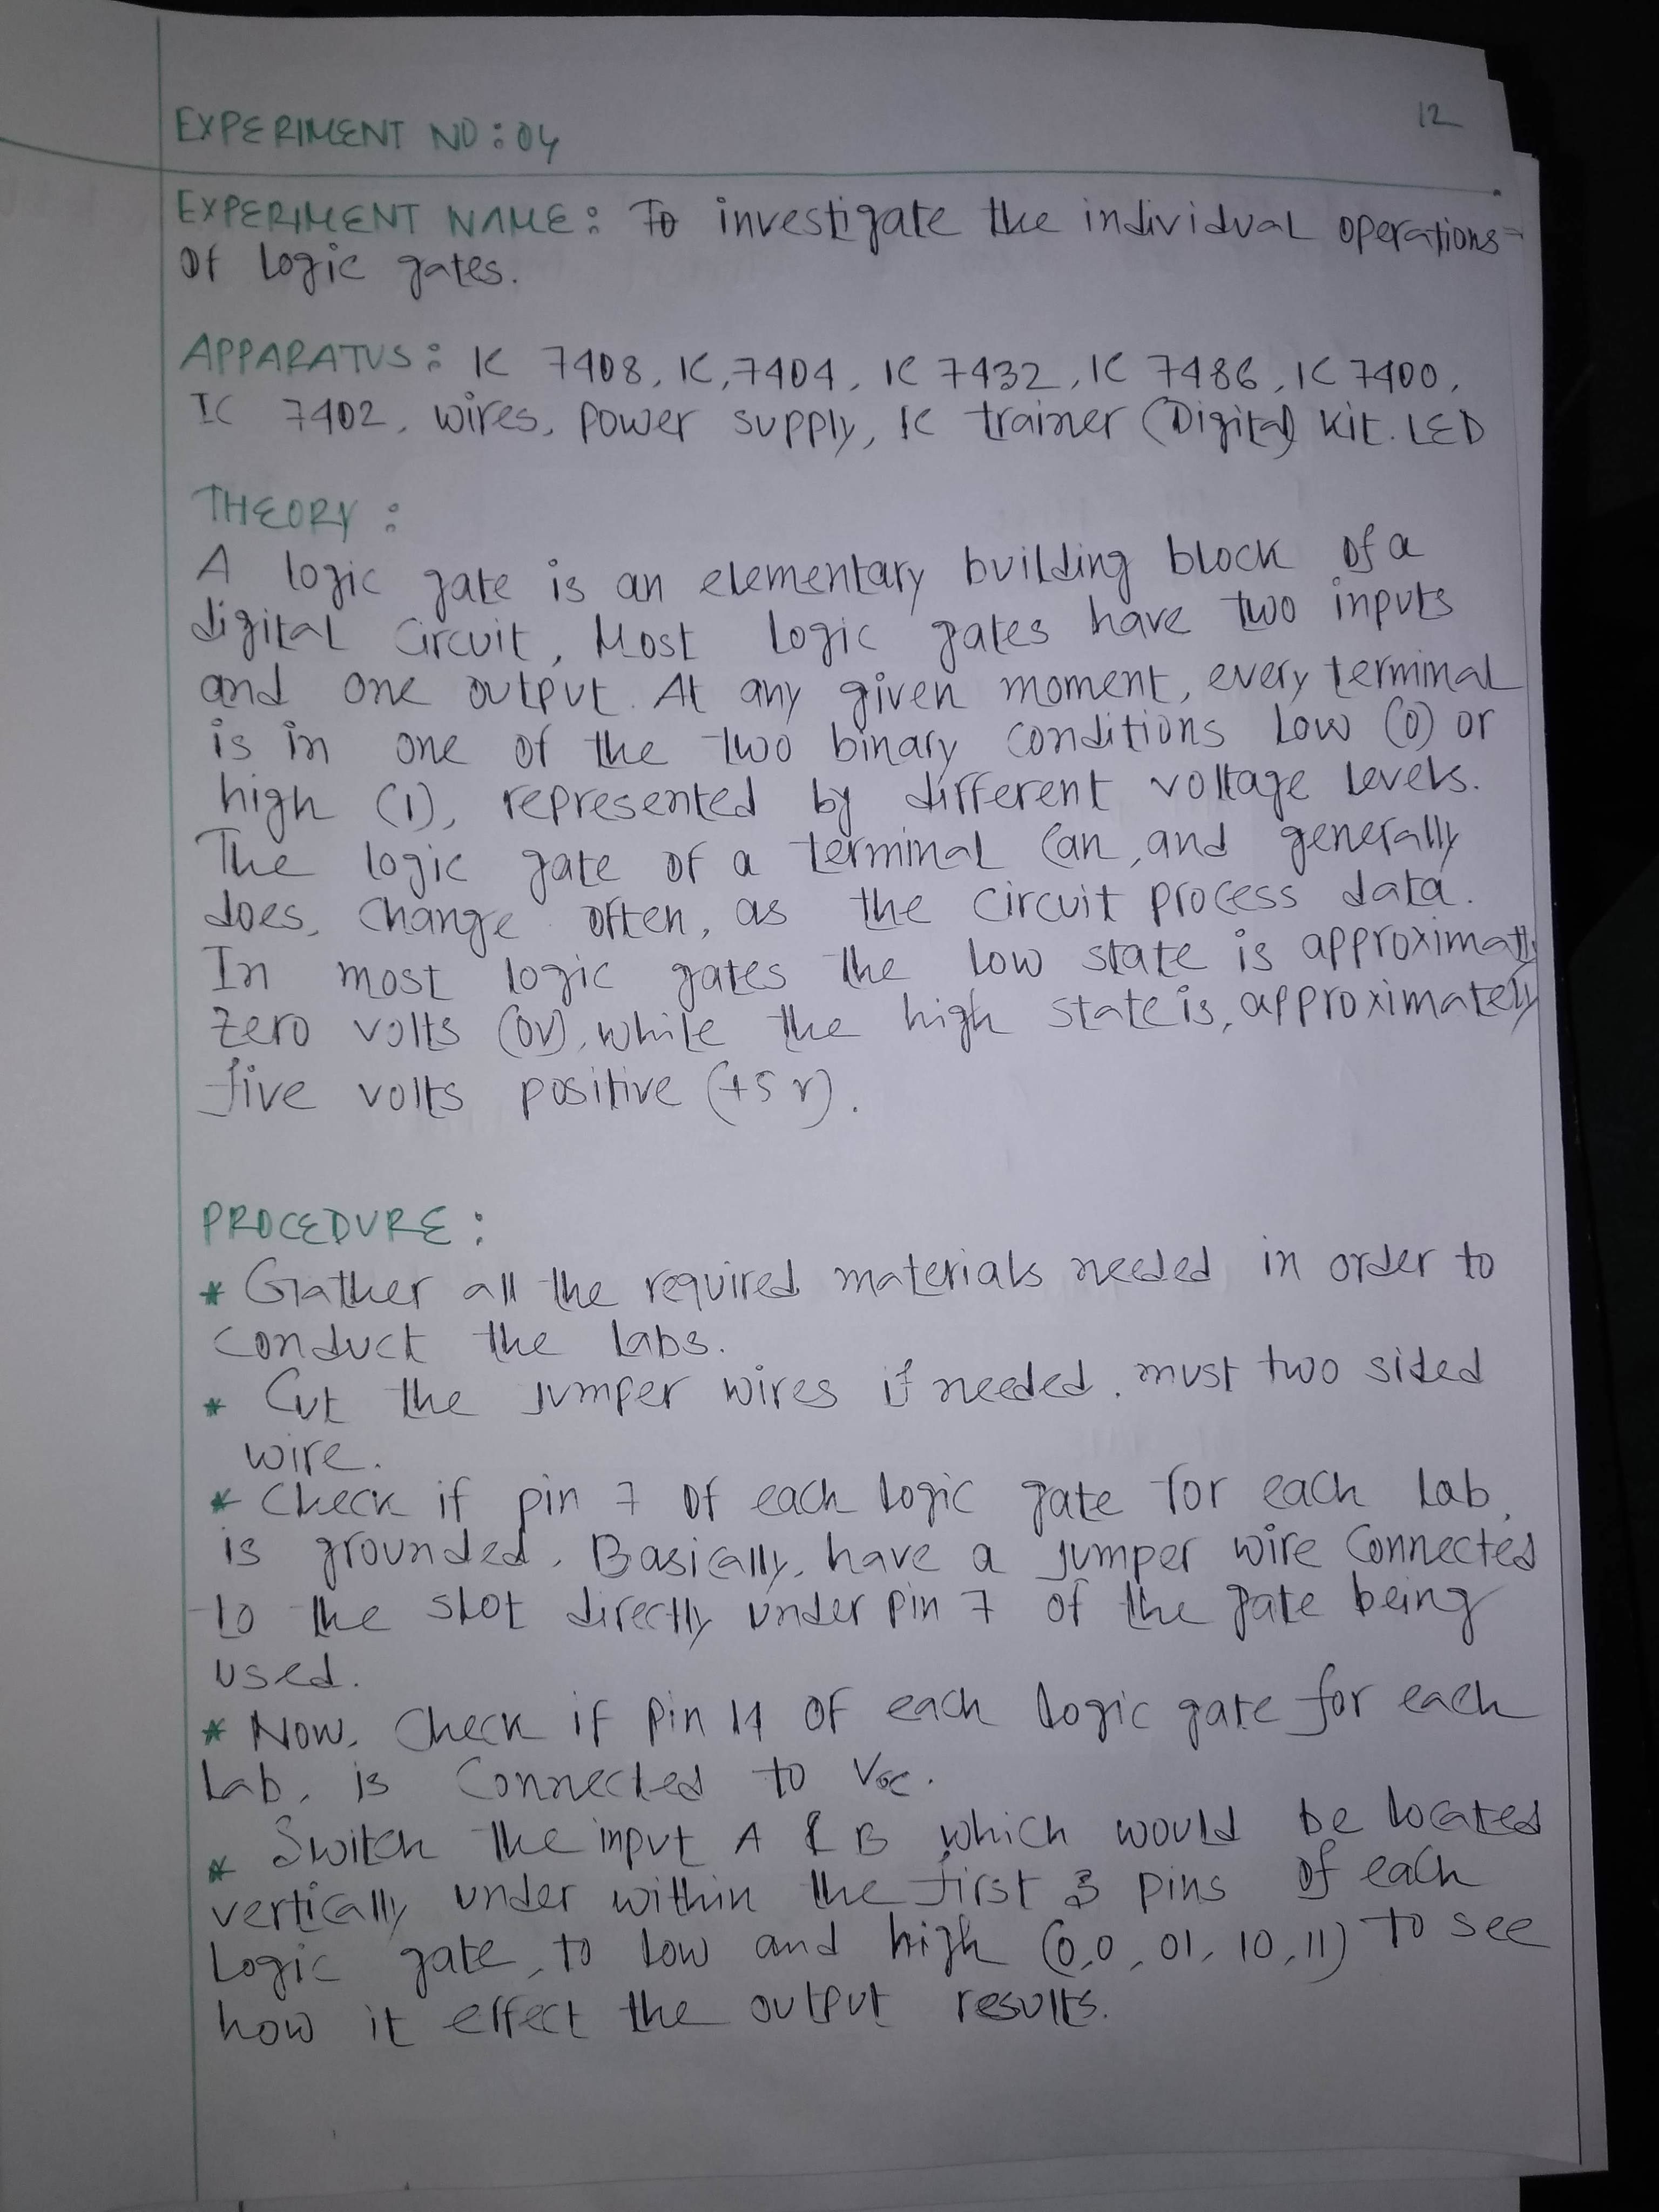 12
EXPERIMENT NO: 04
EXPERIMENT NAME: To investigate the individual operations
of logic gates.
APPARATUS: IC 7408, IC, 7404, IC 7432, IC 7486, IC 7400,
IC 7402, wires, power supply, IC trainer (Digital) Kit. LED
THEORY:
A logic gate is an elementary building block of a
digital circuit, Most logic gates have two inputs
and one output. At any given moment, every terminal
is in one of the two binary conditions low (0) or
high (1), represented by different voltage levels.
The logic gate of a terminal can, and generally
does, change often, as the circuit process data.
In most logic gates the low state is
zero volts (0V), while the high state is, approximately
five volts positive (+5 V).
PROCEDURE:
* Gather all the required materials needed in order to
conduct the labs.
* Cut the jumper wires if needed, must two sided
wire.
* Check if pin 7 of each logic gate for each lab,
is grounded. Basically, have a jumper wire connected
to the slot directly under pin 7 of the gate being
used.
* Now, Check if pin 14 of each logic gate for each
lab, is connected to Vcc.
* Switch the input A & B which would be located
vertically under within the first 3 pins of each
logic gate, to low and high (0,0, 01, 10, 11) to see
how it effect the output results.